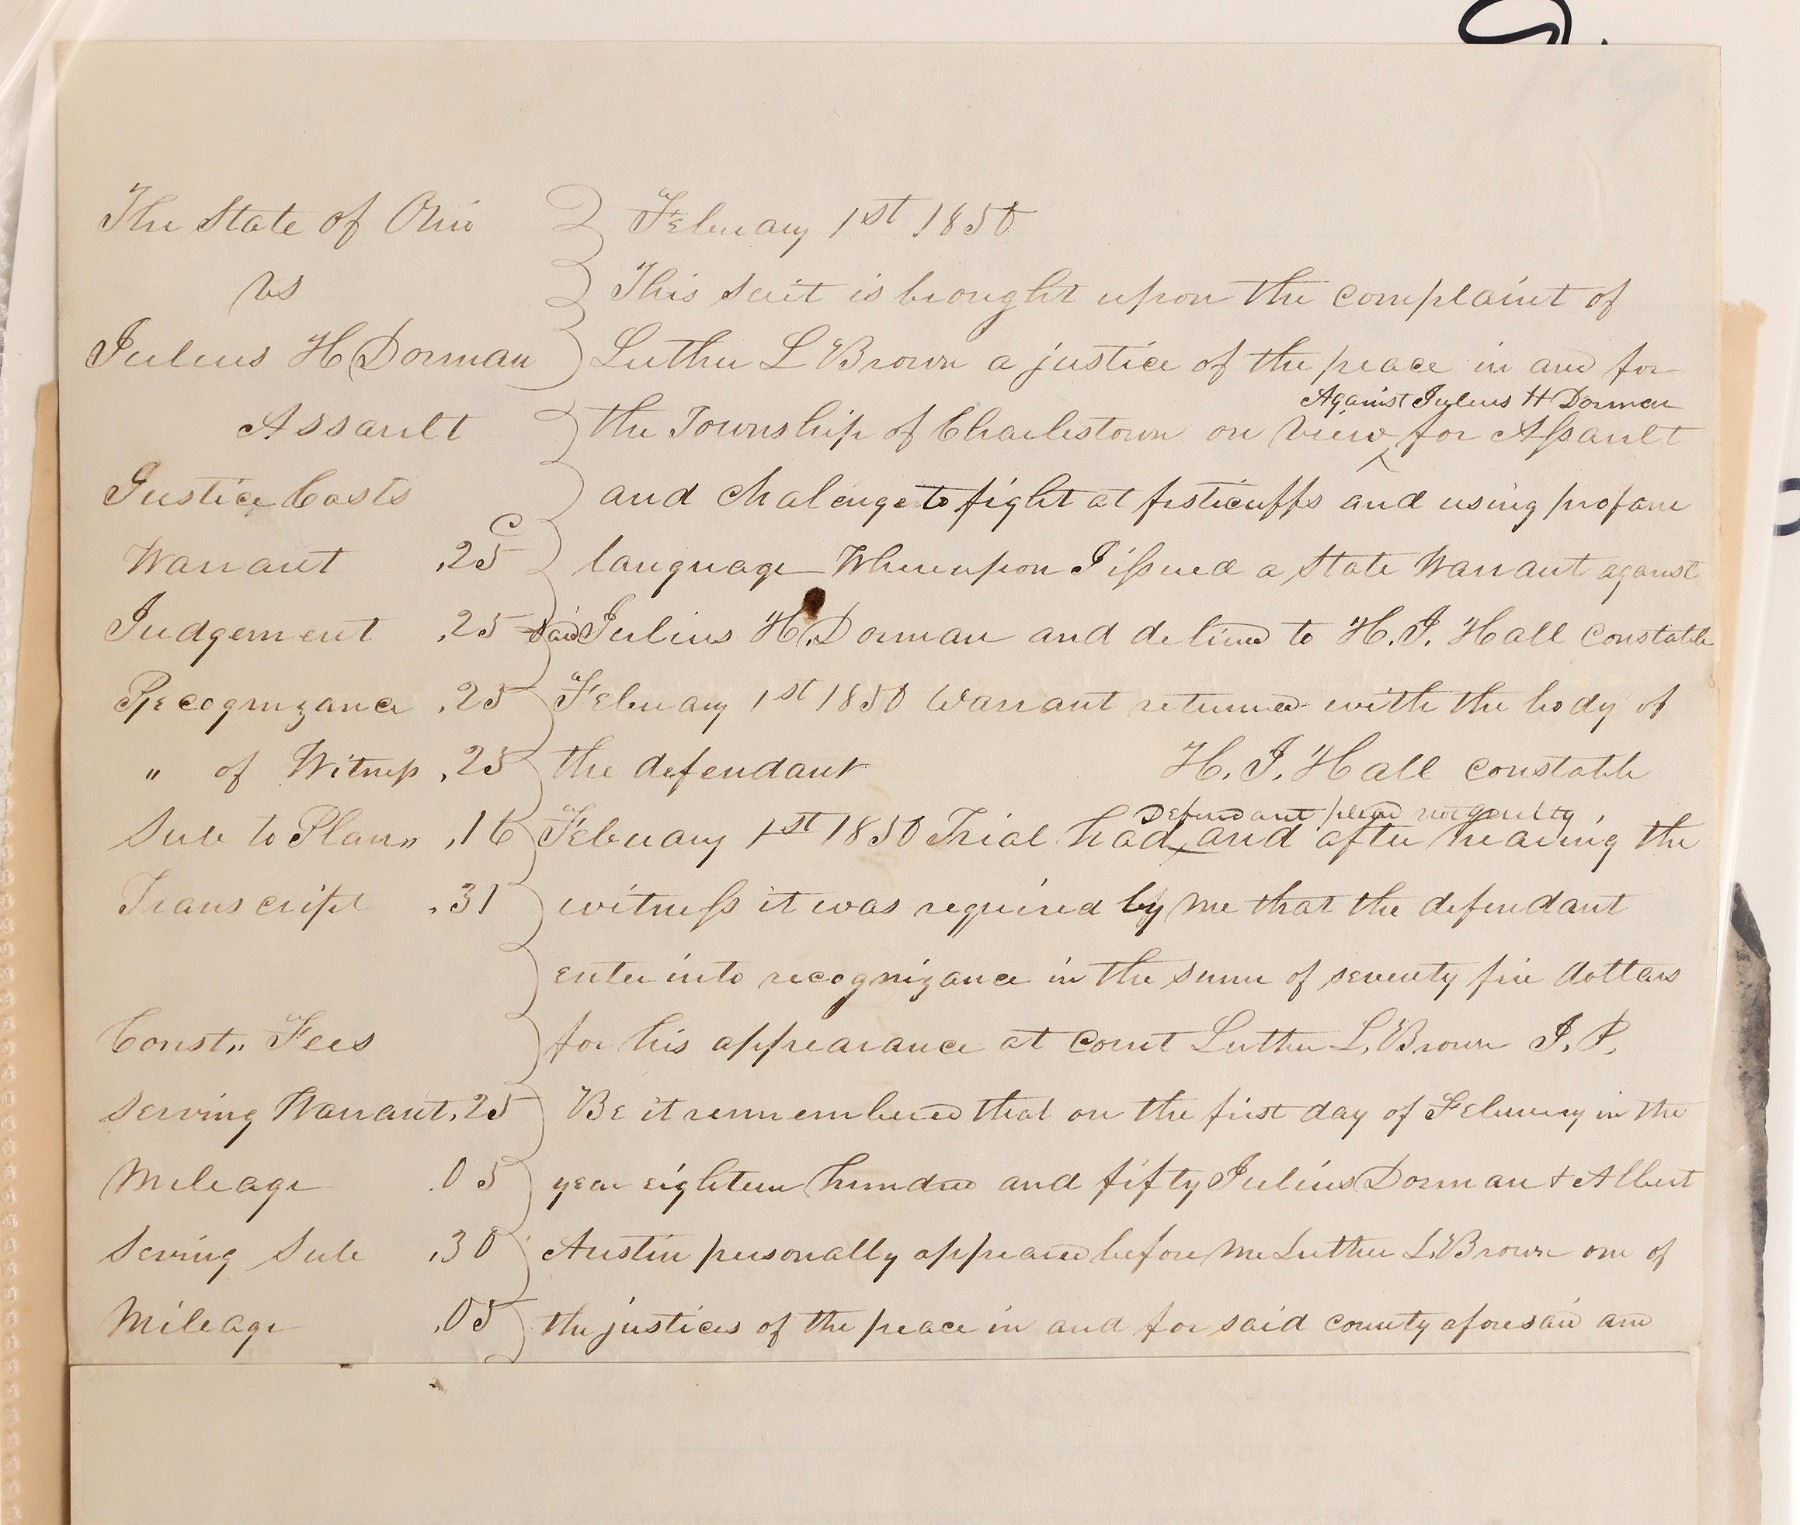 The State of Ohio
vs
Julius H Dorman
Assault
Justice Costs
c
Warrant .25
Judgement .25
Recognizance .25
" of Witness .25
Sub to Plan" .16
Transcript .31
Const" Fees
Serving Warrant .25
Mileage .05
Serving Sub .30
Mileage .05
February 1st 1850
This suit is brought upon the complaint of
Luther L Brown a justice of the peace in and for
Against Julius H Dorman
the Township of Charlestown on view ^ for Assault
and chalenge to fight at fisticuffs and using profane
language Whereupon I issued a State Warrant against
said Julius H. Dorman and deliverd to H. J. Hall constable
February 1st 1850 Warrant returned with the body of
the defendant H. J. Hall constable
Defendant plead not guilty
February 1st 1850 Trial had ^ and after hearing the
witness it was required by me that the defendant
enter into recognizance in the sum of seventy five dollars
for his appearance at Court Luther L. Brown J. P.
Be it remembered that on the first day of February in the
year eighteen hundred and fifty Julius Dorman + Albert
Austin personally appeared before me Luther L. Brown one of
the justices of the peace in and for said county aforesaid and